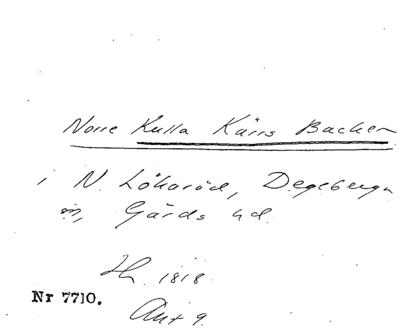 Norre Kulla Kärrs Backen
i N. Lökaröd, Degeberga
sn, Gärds hd.
1818
Nr 7710.
Akt 9.